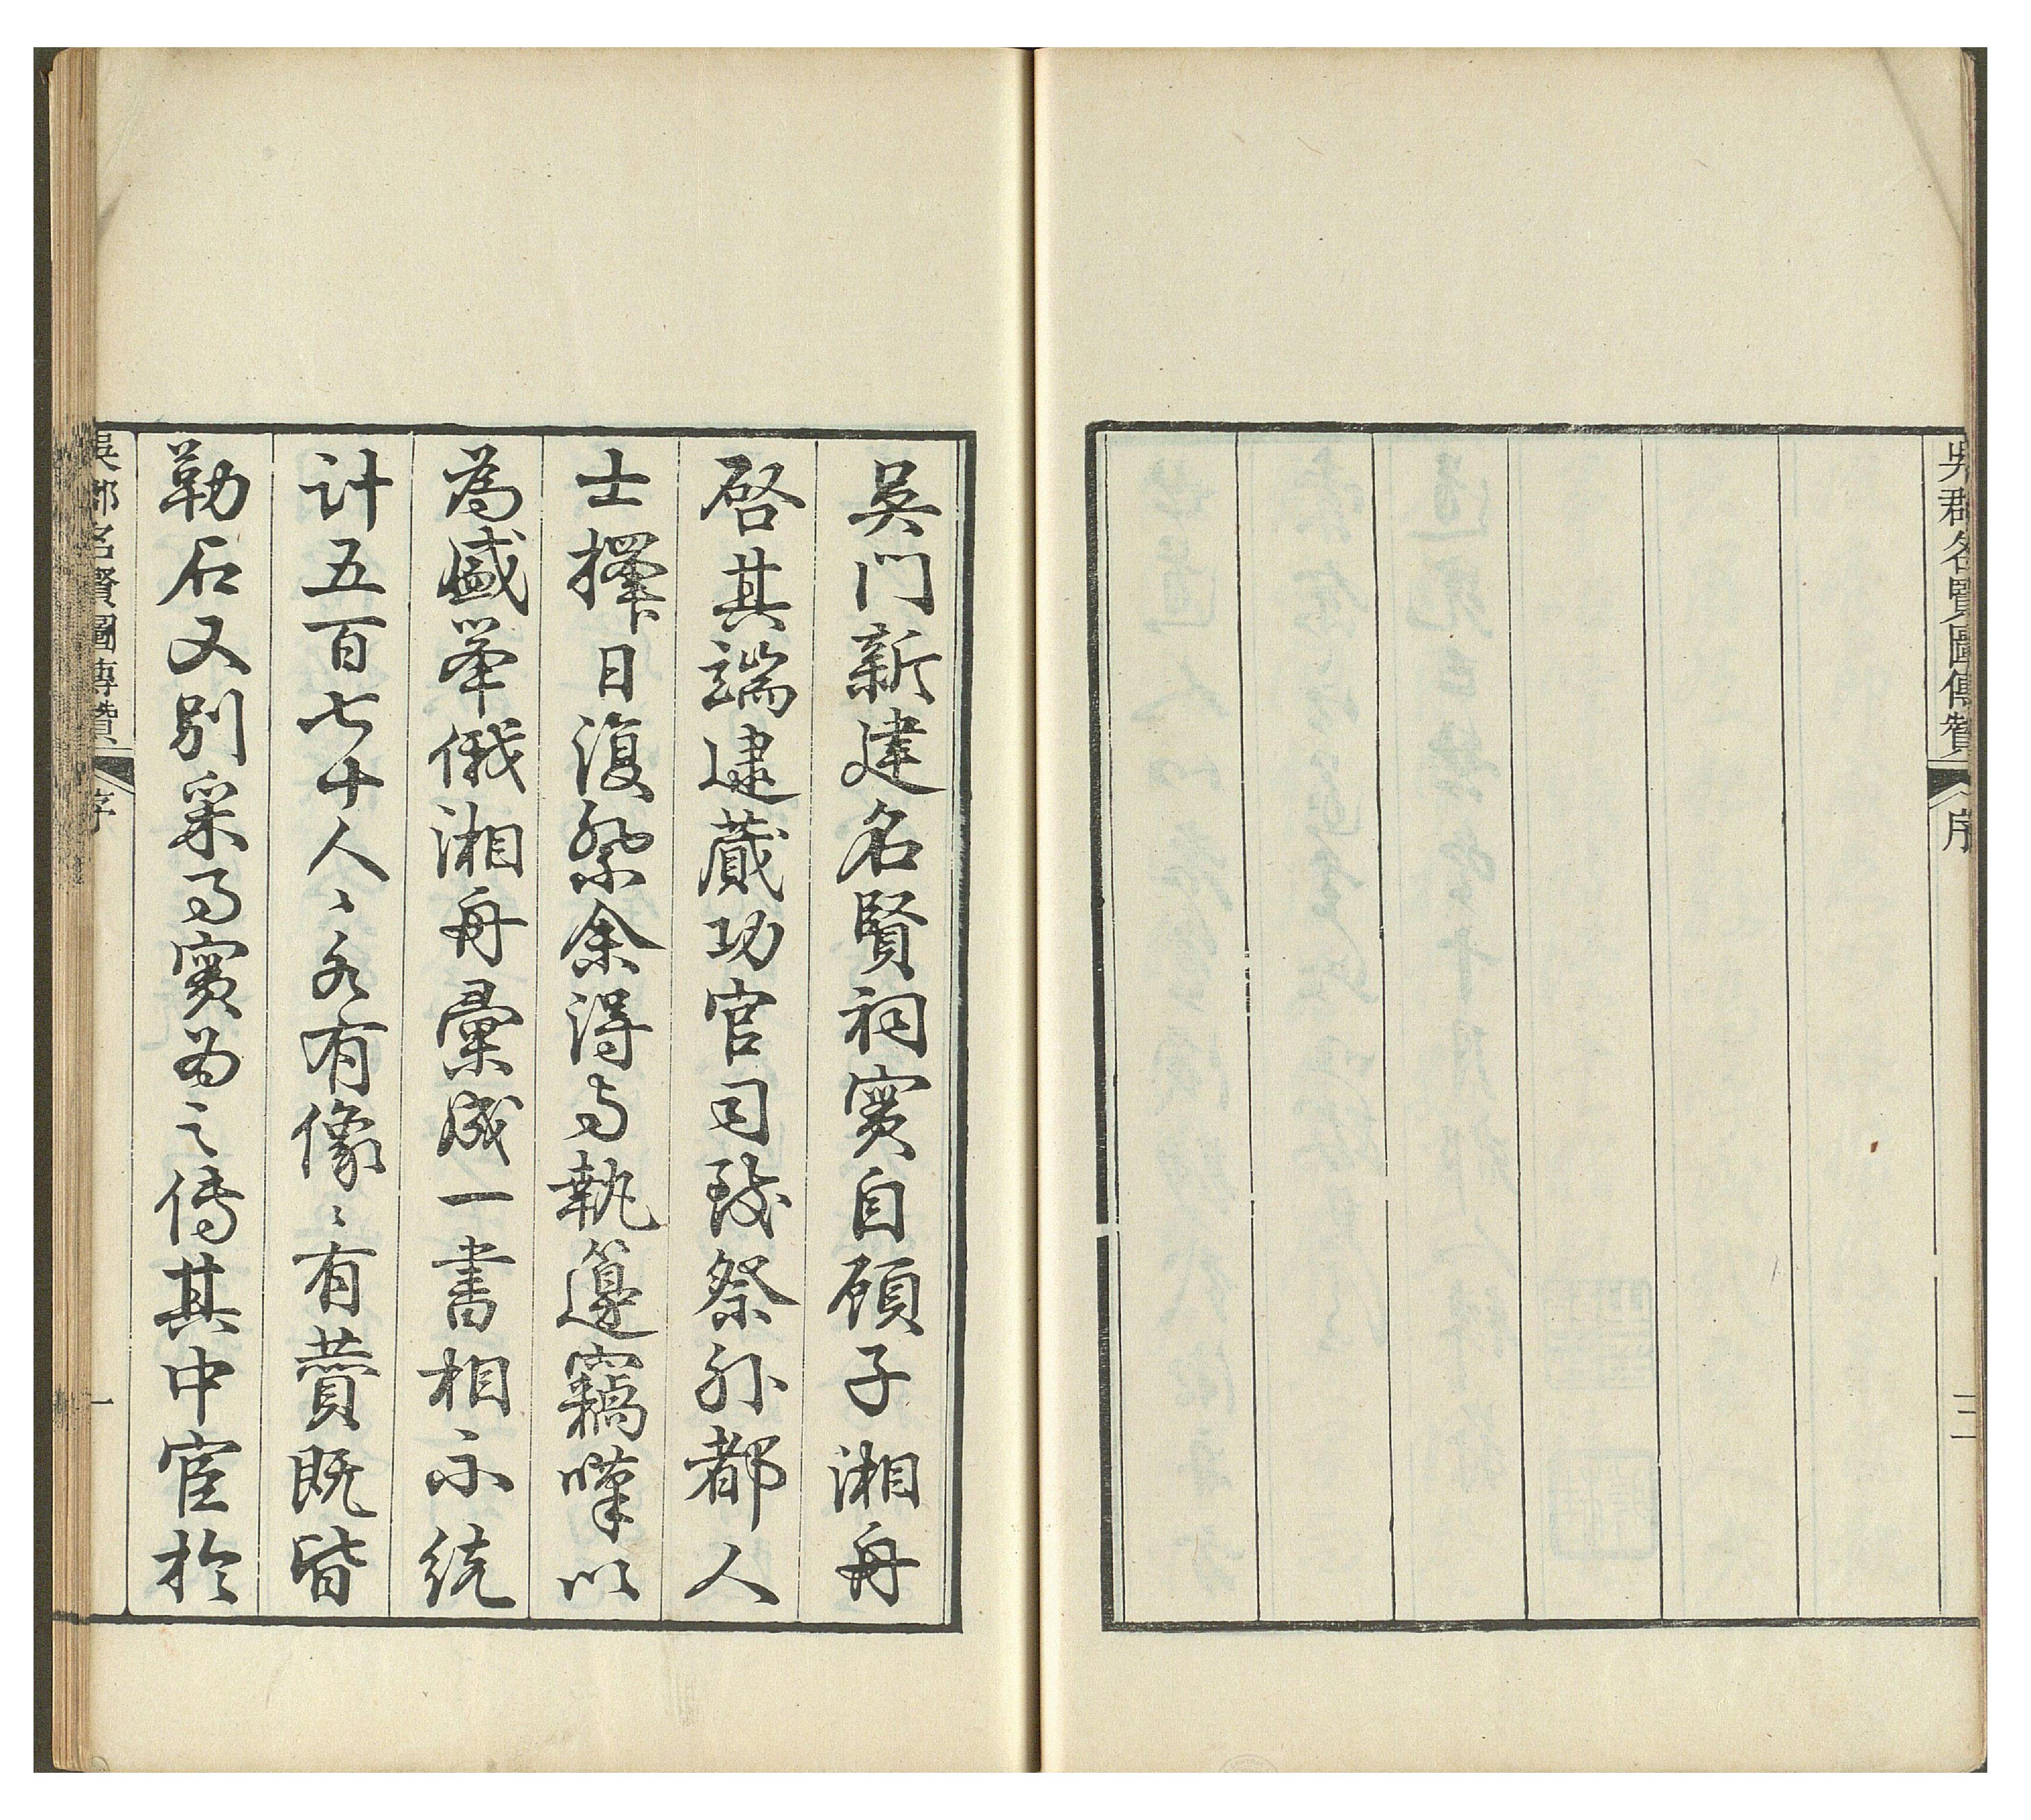 吳郡名賢圖傳贊 序 三
吳门新建名賢祠實自顧子湘舟
啓其端逮蕆功官司致祭外都人
士擇日復祭余得与執籩竊嘆以
為盛举俄湘舟彙成一書相示統
计五百七十人〻各有像〻有贊既皆
勒石又别采事實为之傳其中宦於
吳郡名賢圖傳贊 序 一